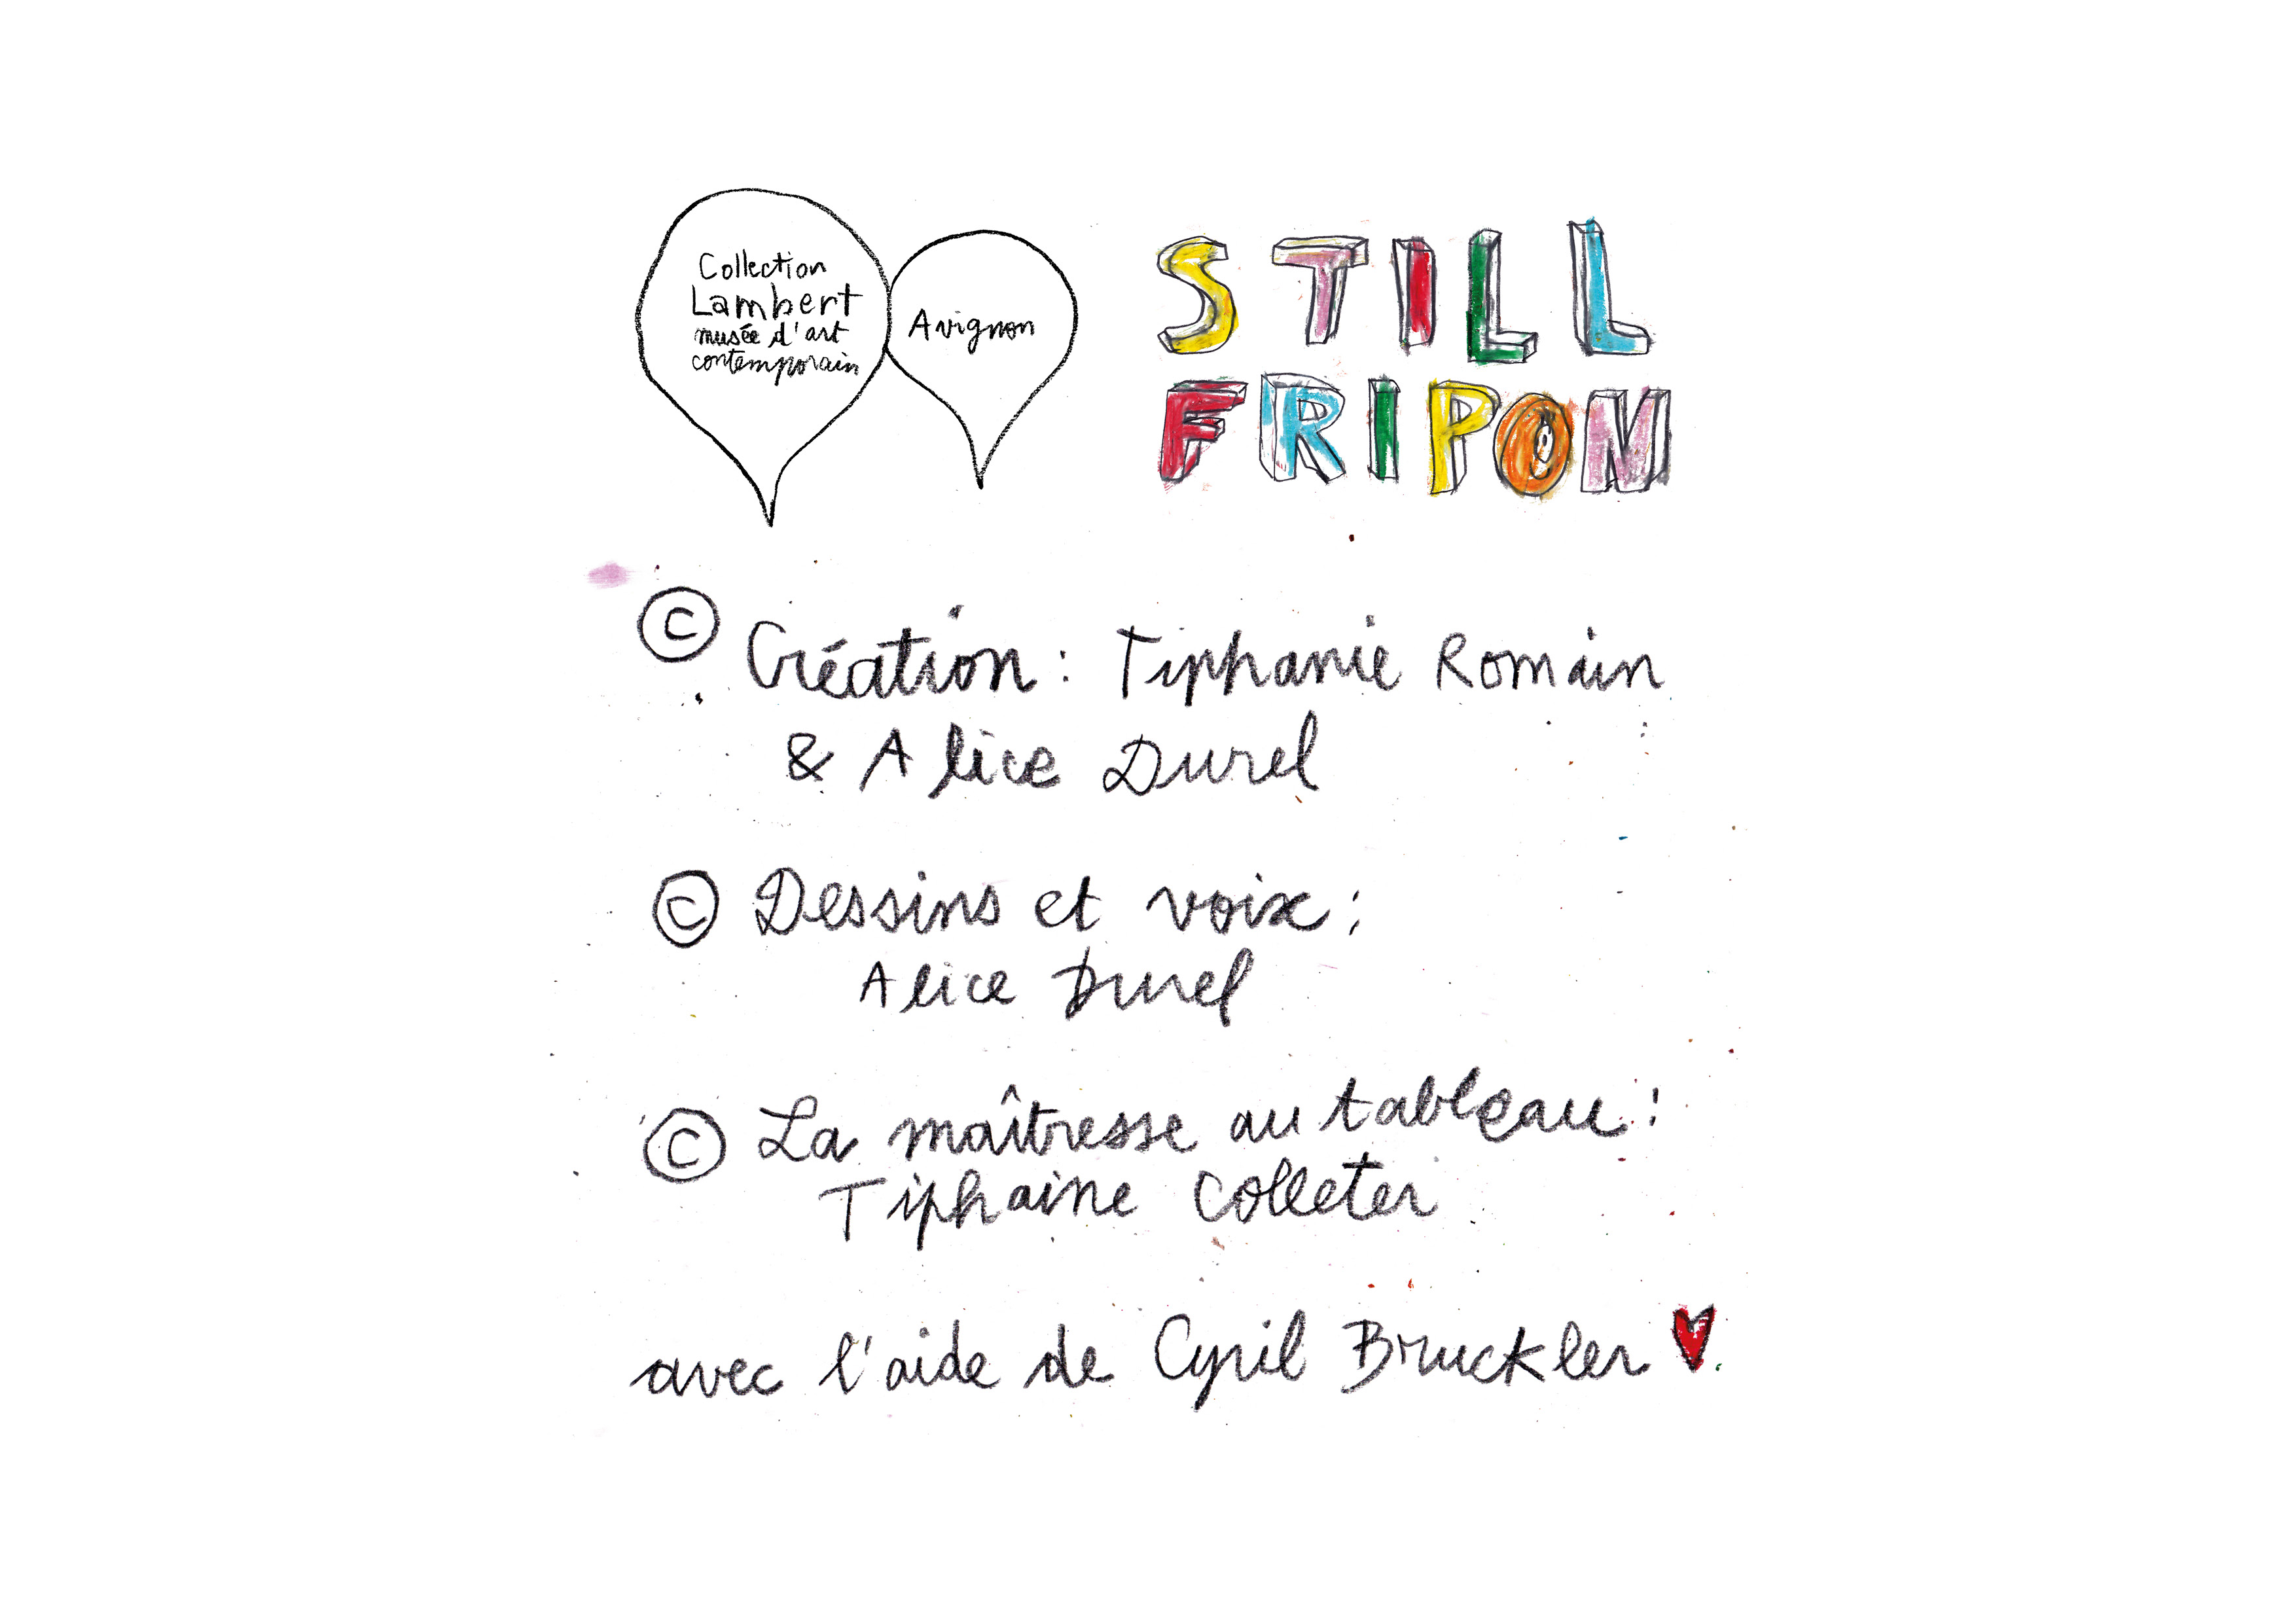 Collection
Lambert
musée d'art
contemporain
Avignon
STILL
FRIPON
© Création : Tiphanie Romain
& Alice Durel
© Dessins et voix :
Alice Durel
© La maîtresse au tableau :
Tiphaine Colleter
avec l'aide de Cyril Bruckler